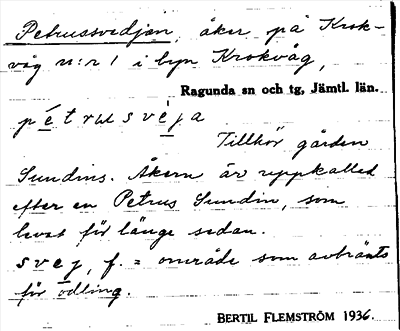 Petrussvedjan, åker på Krok-
våg n:r 1 i byn Krokvåg,
Ragunda sn och tg, Jämtl. län.
pétrus svéja
Tillhör gården
Sundins. Åkern är uppkallad
efter en Petrus Sundin, som
levat för länge sedan.
svej, f. = område som avbränts
för odling.
BERTIL FLEMSTRÖM 1936.